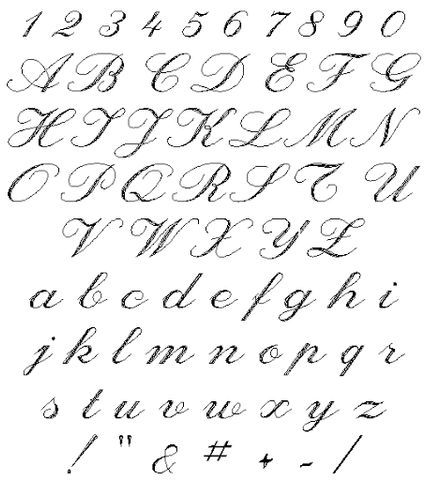 1 2 3 4 5 6 7 8 9 0
A B C D E F G
H I J K L M N
O P Q R S T U
V W X Y Z
a b c d e f g h i
j k l m n o p q r
s t u v w x y z
! " & # + - /